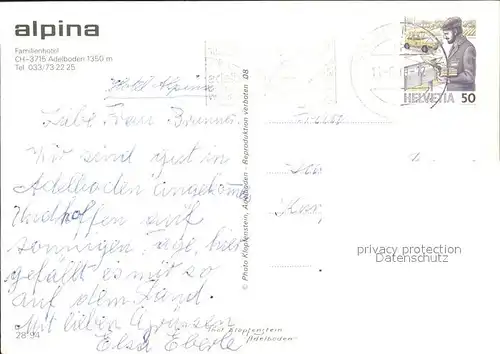 alpina
Familienhotel
CH-3715 Adelboden 1350 m
Tel. 033/73 22 25
Hotel Alpina
Liebe Frau Brunner
Wir sind gut in
Adelboden angekommen
Und hoffen auf
sonnigen Tage, hier
gefällt es mir so
auf dem Land.
Mit lieben Grüssen
Elsa Eberle
28'94
© Photo Klopfenstein, Adelboden - Reproduktion verboten D8
Klopfenstein
Adelboden
HELVETIA 50
Frau
privacy protection
Datenschutz